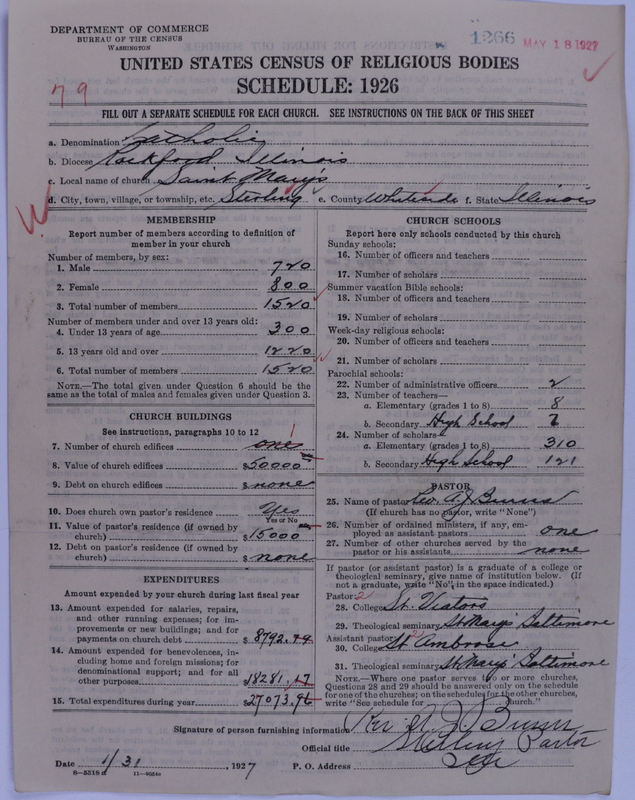 DEPARTMENT OF COMMERCE
BUREAU OF THE CENSUS
WASHINGTON
1266 MAY 18 1927
UNITED STATES CENSUS OF RELIGIOUS BODIES
SCHEDULE: 1926
79
FILL OUT A SEPARATE SCHEDULE FOR EACH CHURCH. SEE INSTRUCTIONS ON THE BACK OF THIS SHEET
a. Denomination Catholic
b. Diocese Rockford Illinois
c. Local name of church Saint Mary's
d. City, town, village, or township, etc. Sterling e. County Whiteside f. State Illinois
MEMBERSHIP
Report number of members according to definition of member in your church
Number of members, by sex:
1. Male 720
2. Female 800
3. Total number of members 1520
Number of members under and over 13 years old:
4. Under 13 years of age 300
5. 13 years old and over 1220
6. Total number of members 1520
NOTE.—The total given under Question 6 should be
the same as the total of males and females given under Question 3.
CHURCH BUILDINGS
See instructions, paragraphs 10 to 12
7. Number of church edifices one
8. Value of church edifices $50000
9. Debt on church edifices $none
10. Does church own pastor's residence Yes
Yes or No
11. Value of pastor's residence (if owned by
church) $15000
12. Debt on pastor's residence (if owned by
church) $none
EXPENDITURES
Amount expended by your church during last fiscal year
13. Amount expended for salaries, repairs,
and other running expenses; for im-
provements or new buildings; and for
payments on church debt $8792.79
14. Amount expended for benevolences, in-
cluding home and foreign missions; for
denominational support; and for all
other purposes 18281.17
15. Total expenditures during year $27073.96
CHURCH SCHOOLS
Report here only schools conducted by this church
Sunday schools:
16. Number of officers and teachers
17. Number of scholars
Summer vacation Bible schools:
18. Number of officers and teachers
19. Number of scholars
Week-day religious schools:
20. Number of officers and teachers
21. Number of scholars
Parochial schools:
22. Number of administrative officers 2
23. Number of teachers—
a. Elementary (grades 1 to 8) 8
b. Secondary High School
24. Number of scholars—
a. Elementary (grades 1 to 8) 310
b. Secondary High School 121
PASTOR
25. Name of pastor Rev. A.J. Burns
(If church has no pastor, write "None")
26. Number of ordained ministers, if any, em-
ployed as assistant pastors one
27. Number of other churches served by the
pastor or his assistants none
If pastor (or assistant pastor) is a graduate of a college or
theological seminary, give name of institution below. (If
not a graduate, write "No", in the space indicated.)
Pastor: 2
28. College St. Viators
29. Theological seminary St Marys Baltimore
Assistant pastor: 2
30. College St Ambrose
31. Theological seminary St Marys Baltimore
NOTE.—Where one pastor serves two or more churches,
Questions 28 and 29 should be answered only on the schedule
for one of the churches; on the schedules for the other churches,
write "See schedule for church."
Signature of person furnishing information Rev A J Burns
Official title Pastor
Date 1/31, 1927 P. O. Address Sterling Ills
8—5518a 11—9584a